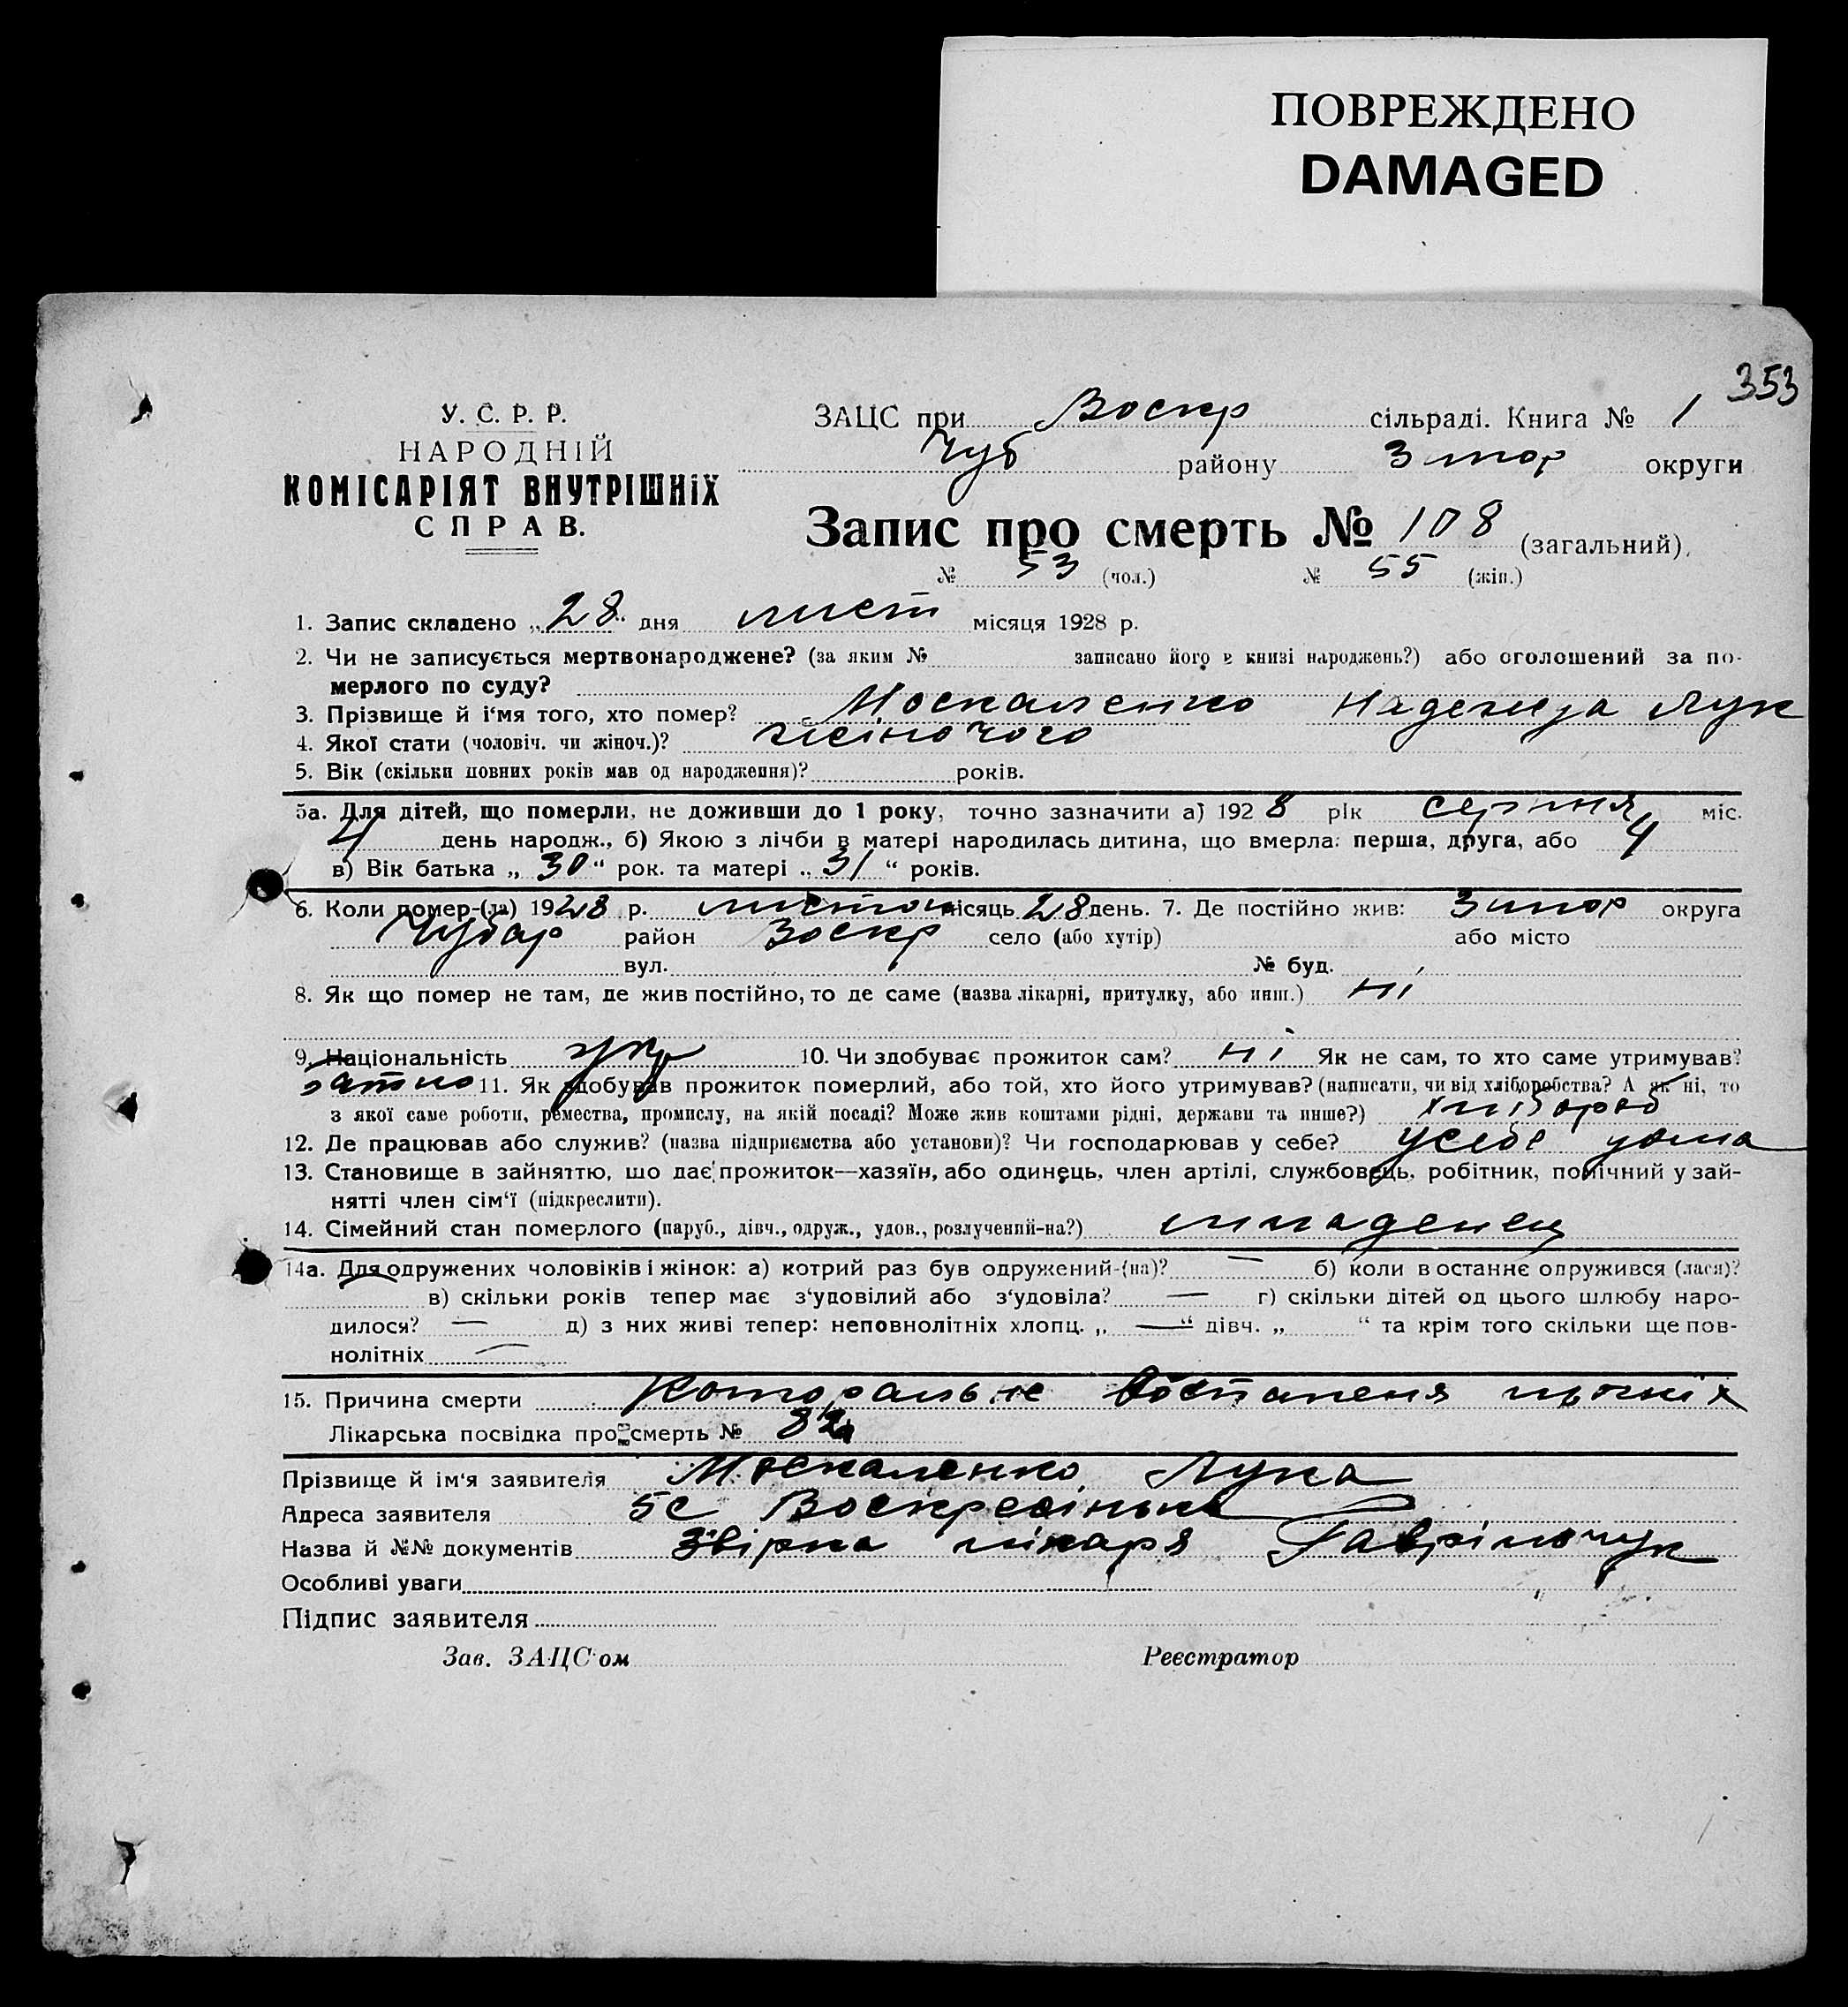 ПОВРЕЖДЕНО
DAMAGED
353
У. С. Р. Р.
НАРОДНІЙ
КОМІСАРІЯТ ВНУТРІШНІХ
СПРАВ.
ЗАЦС при Воскр сільраді. Книга № 1
Чуб району Запор округи
Запис про смерть № 108 (загальний).
№ 53 (чол.) № 55 (жін.)
1. Запис складено „28“ дня лист місяця 1928 р.
2. Чи не записується мертвонароджене? (за яким № записано його в книзі народжень?) або оголошений за по-
мерлого по суду?
3. Прізвище й і'мя того, хто помер? Москаленко Надежда Лук
4. Якої стати (чоловіч. чи жіноч.)? жіночого
5. Вік (скільки повних років мав од народження)? років.
5а. Для дітей, що померли, не доживши до 1 року, точно зазначити а) 1928 рік серпня міс.
4 день народж., б) Якою з лічби в матері народилась дитина, що вмерла: перша, друга, або 4
в) Вік батька „30“ рок. та матері „31“ років.
6. Коли помер-(ла) 1928 р. листоп місяць 28 день. 7. Де постійно жив: Запор округа
Чубар район Воскр село (або хутір) або місто
вул. № буд.
8. Як що помер не там, де жив постійно, то де саме (назва лікарні, притулку, або инш.) ні
9. Національність укр 10. Чи здобуває прожиток сам? ні Як не сам, то хто саме утримував?
батько 11. Як здобував прожиток померлий, або той, хто його утримував? (написати, чи від хліборобства? А як ні, то
з якої саме роботи, ремества, промислу, на якій посаді? Може жив коштами рідні, держави та инше?) хлібороб
12. Де працював або служив? (назва підприємства або установи)? Чи господарював у себе? у себе дома
13. Становище в зайняттю, що дає прожиток—хазяїн, або одинець, член артілі, службовець, робітник, помічний у зай-
нятті член сім'ї (підкреслити).
14. Сімейний стан померлого (паруб., дівч., одруж., удов., розлучений-на?) младенец
14а. Для одружених чоловіків і жінок: а) котрий раз був одружений-(на)? — б) коли в останнє одружився (лася)?
в) скільки років тепер має з'удовілий або з'удовіла? — г) скільки дітей од цього шлюбу наро-
дилося? — д) з них живі тепер: неповнолітніх хлопц. „—“ дівч. „ “ та крім того скільки ще пов-
нолітніх —
15. Причина смерти Катаральне
Лікарська посвідка про смерть № 82
Прізвище й ім'я заявителя Москаленко Лука
Адреса заявителя Воскресінька
Назва й №№ документів лікаря Гаврильчук
Особливі уваги
Підпис заявителя
Зав. ЗАЦС'ом Реєстратор